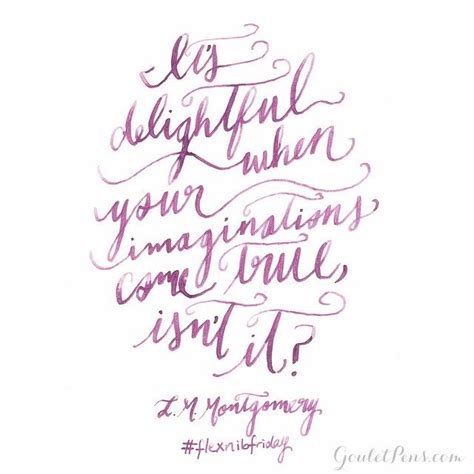 It's
delightful
when
your
imaginations
come true,
isn't it?
L. M. Montgomery
#flexnibfriday
GouletPens.com